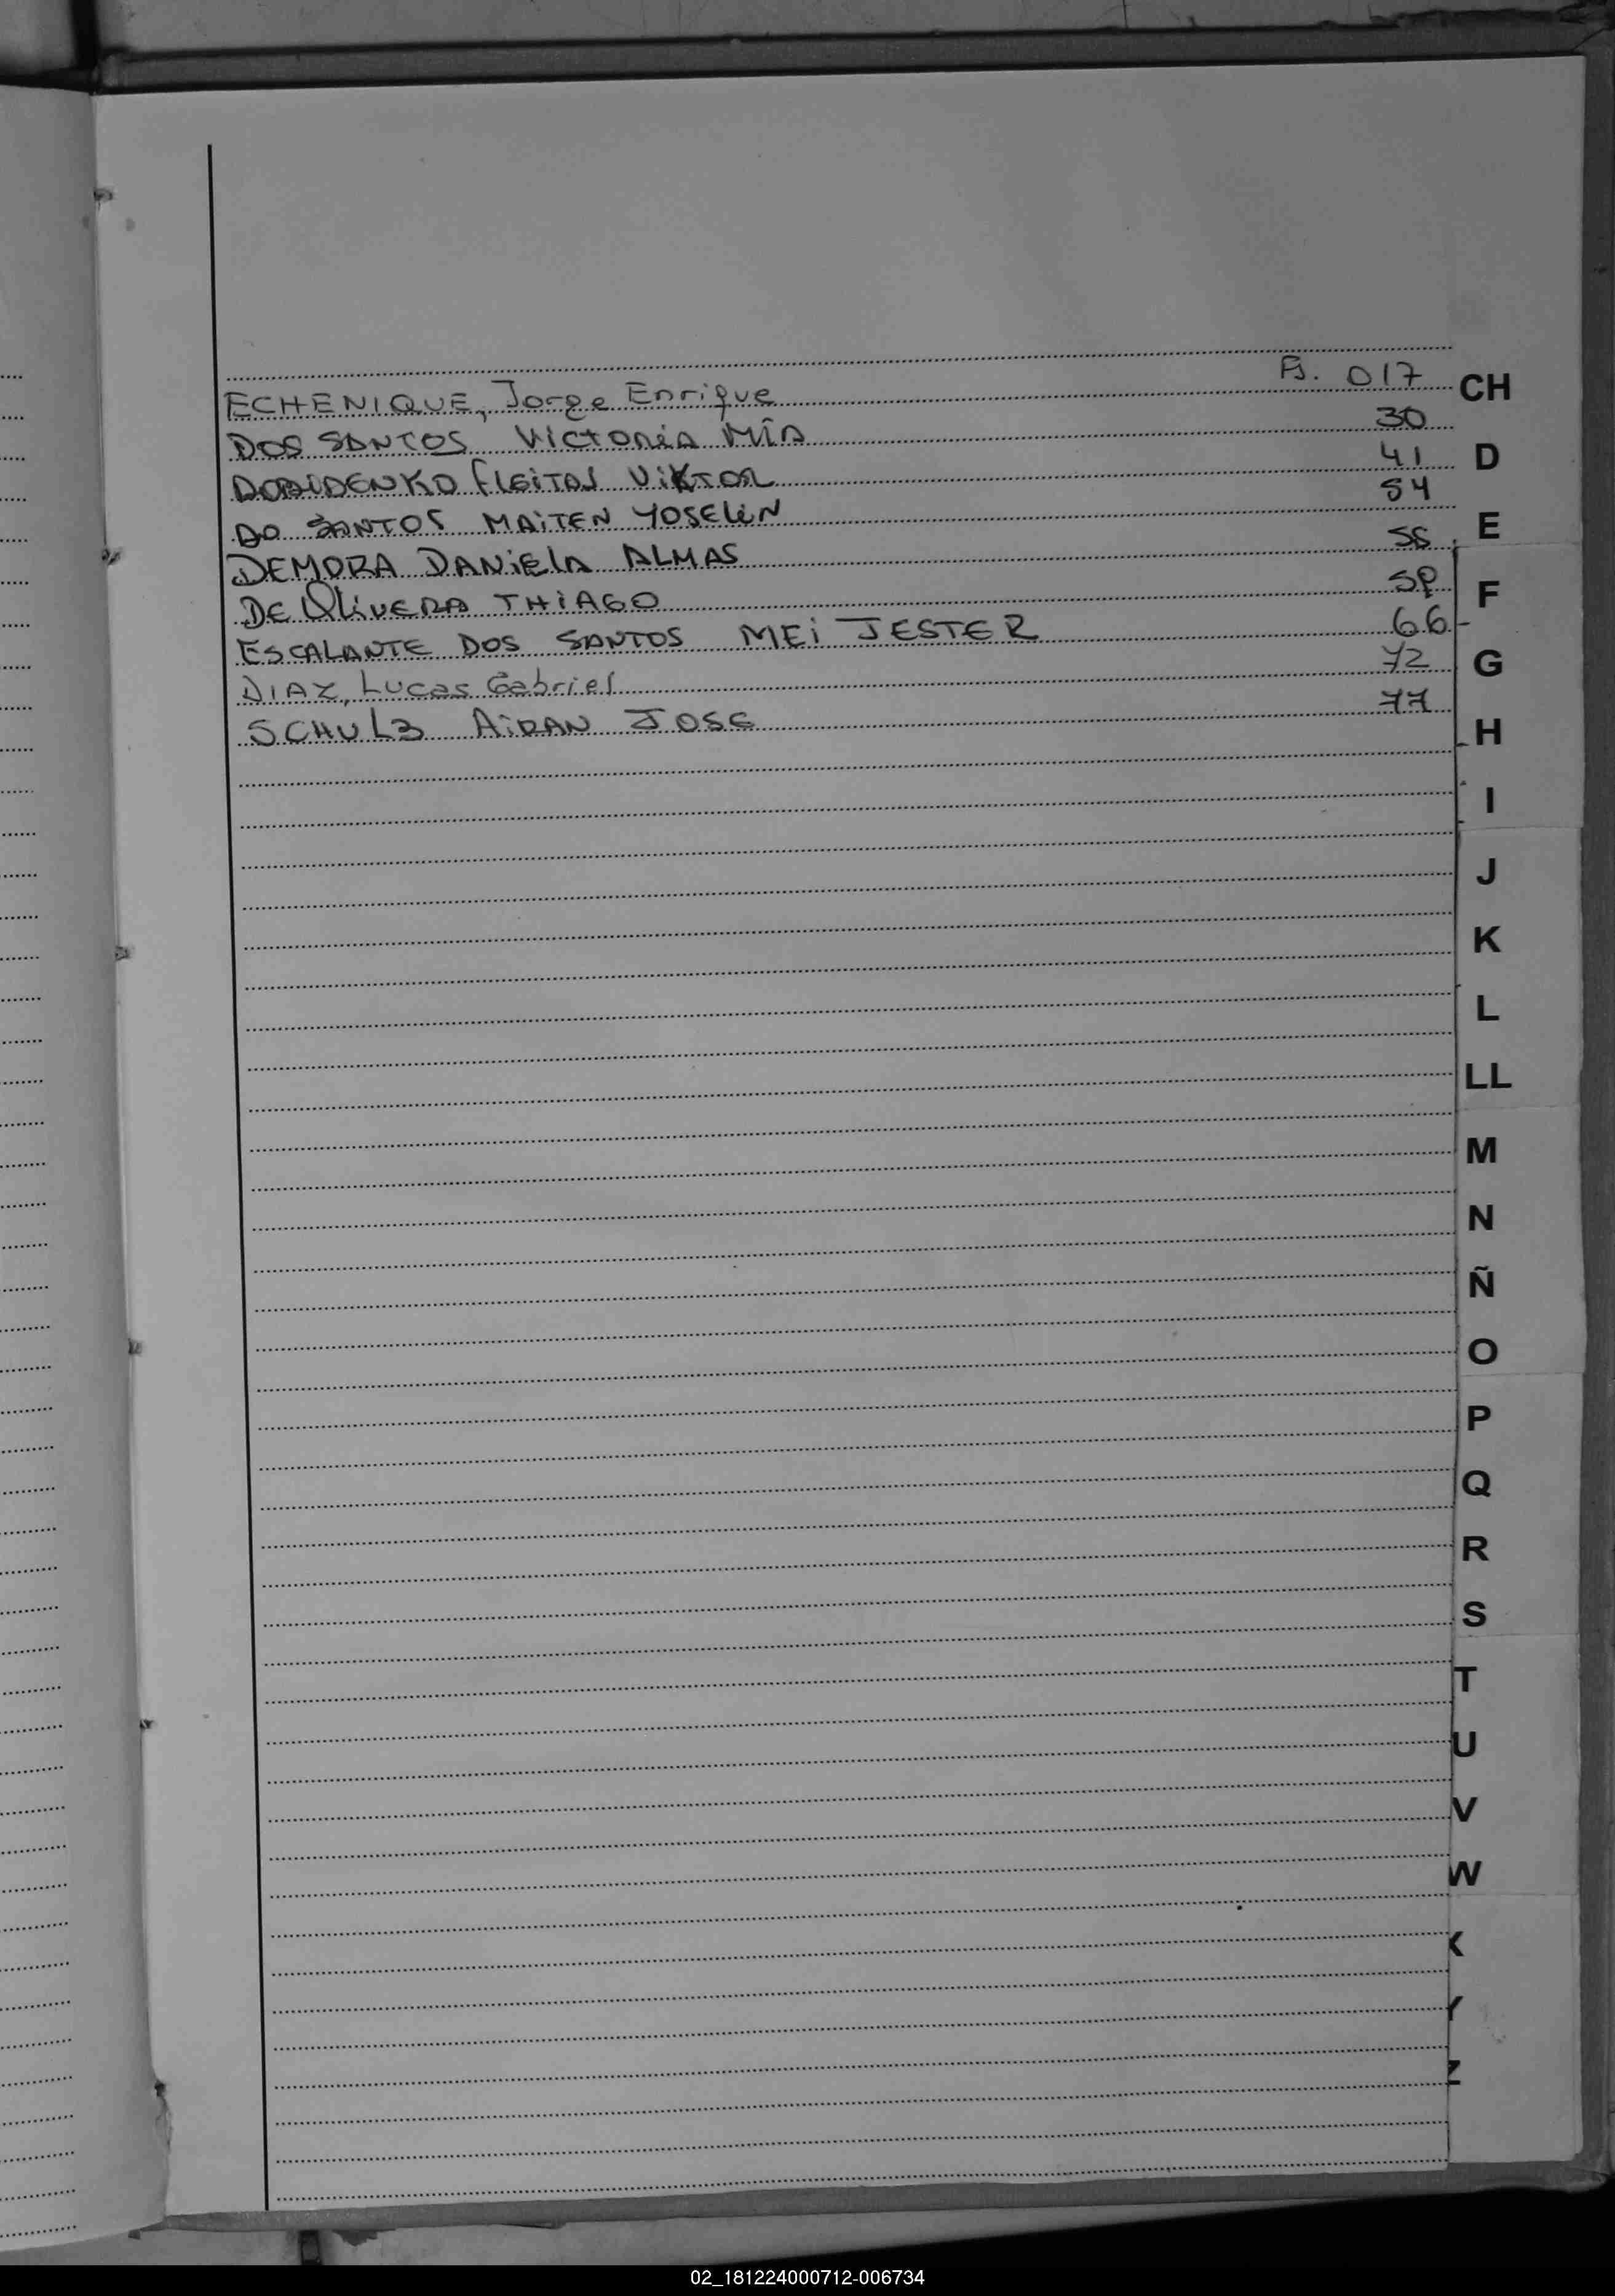 ECHENIQUE, Jorge Enrique Fs. 017
DOS SANTOS Victoria MÍA 30
FLEITAS VIKTOR 41
DO SANTOS MAITEN YOSELIN 54
DEMORA DANIELA ALMAS
DE OLIVERA THIAGO
ESCALANTE DOS SANTOS MEI JESTER 66
DIAZ, Lucas Gabriel 72
SCHULZ AIRAN JOSE 77
CH
D
E
F
G
H
I
J
K
L
LL
M
N
Ñ
O
P
Q
R
S
T
U
V
W
X
Y
Z
02_181224000712-006734